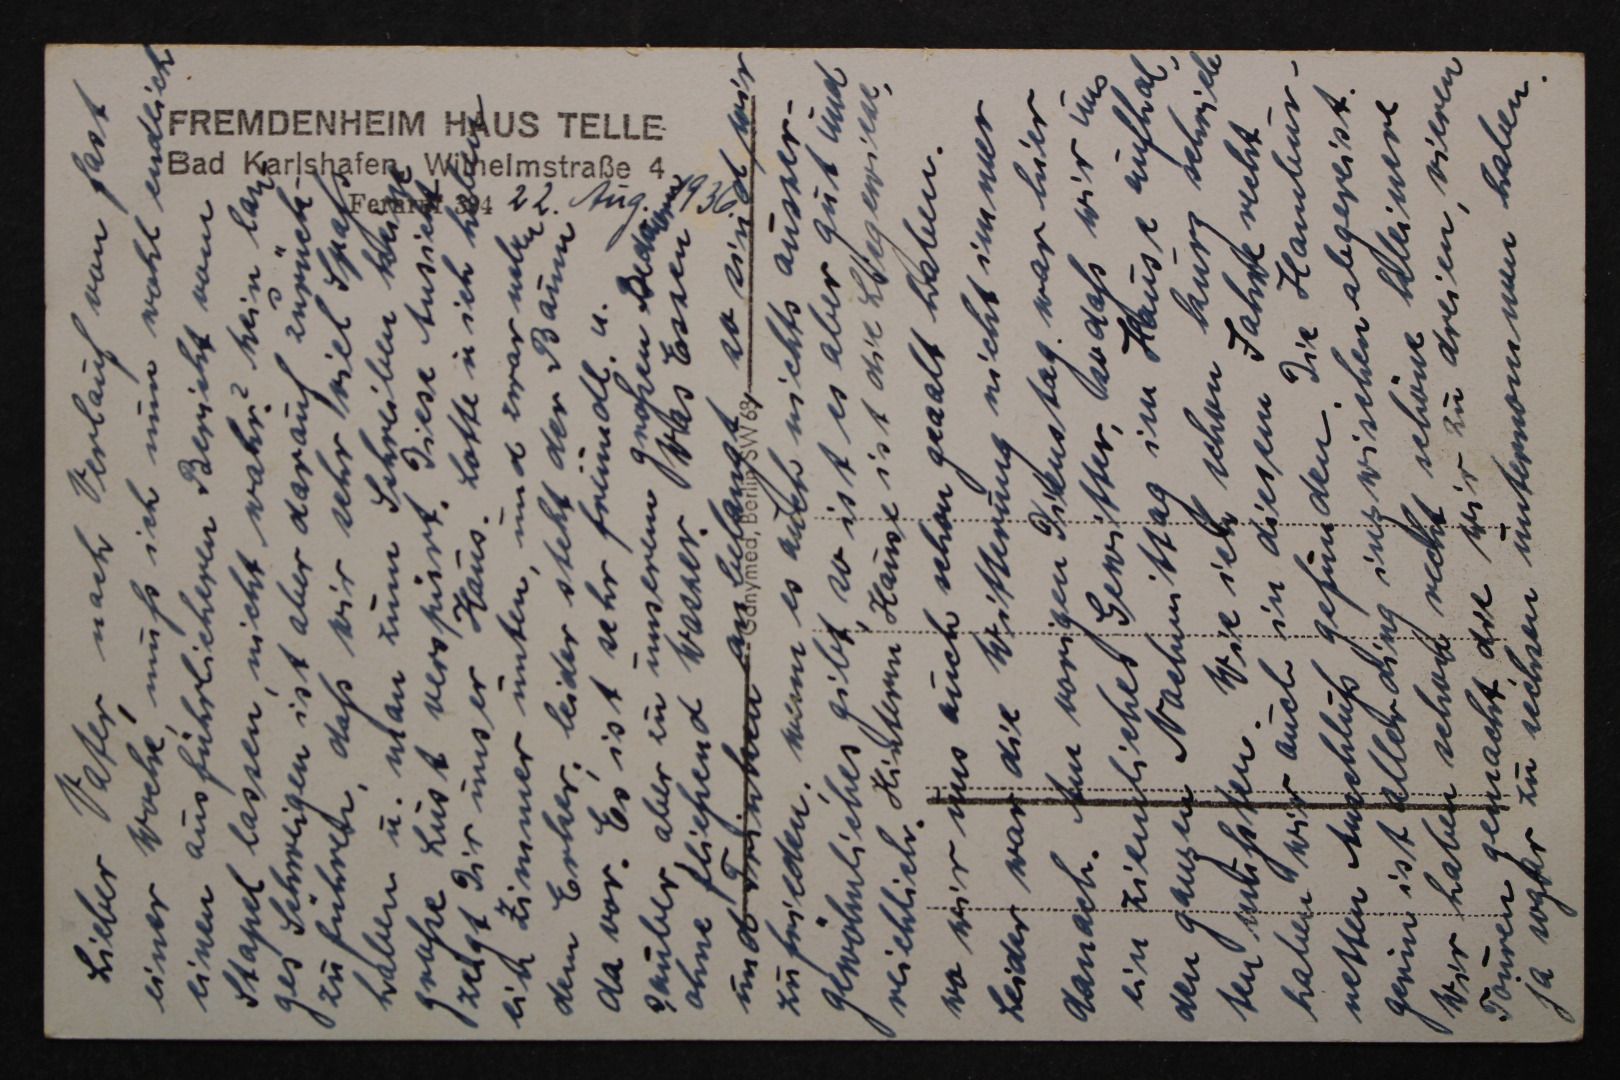 FREMDENHEIM HAUS TELLE
Bad Karlshafen, Wilhelmstraße 4
Fernruf 394 22. Aug. 1936
Lieber Vater, nach Verlauf von fast
einer Woche, muß ich nun wohl endlich
einen ausführlicheren Bericht vom
Stapel lassen, nicht wahr? Mein lan-
ges Schweigen ist aber darauf zurück-
zuführen, daß wir sehr viel Spaß
haben u. man zum Schreiben keine
große Lust verspürt. Diese Ansicht
zeigt Dir unser Haus. Lotte u ich haben
ein Zimmer unten, und zwar neben
dem Erker, leider steht der Baum
da vor. Es ist sehr freundl. u.
sauber, aber zu unserem großen Bedauern
ohne fließend Wasser. Was Essen
und Trinken anbelangt so sind wir
zufrieden, wenn es auch nichts außer-
gewöhnliches gibt, so ist es aber gut und
reichlich. Hinterm Hause ist die Liegewiese,
wo wir uns auch schon geaalt haben.
Leider war die Witterung nicht immer
danach. Am vorigen Dienstag war hier
ein ziemliches Gewitter, sodaß wir uns
den ganzen Nachmittag im Hause aufhal-
ten mußten. Wie ich schon kurz schrieb
haben wir auch in diesem Jahre recht
netten Anschluß gefunden. Die Hambur-
gerin ist allerding inzwischen abgereist.
Wir haben schon recht schöne kleinere
Touren gemacht, die wir zu dreien, vieren
ja sogar zu sechsen unternommen haben.
Ganymed, Berlin SW 68